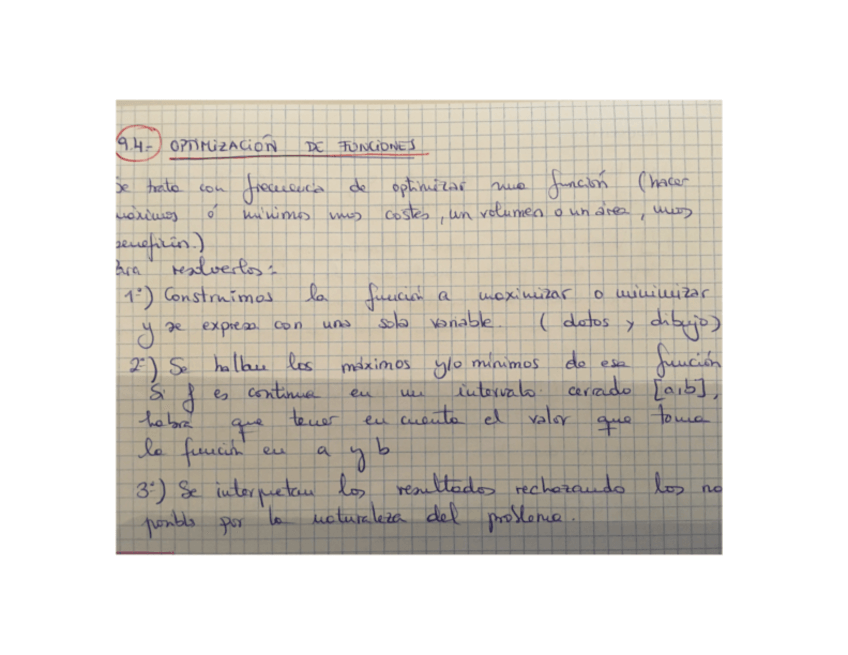 9.4.- OPTIMIZACIÓN DE FUNCIONES
Se trata con frecuencia de optimizar una función (hacer
máximos ó mínimos unos costes, un volumen o un área, unos
beneficios.)
Para resolverlos:
1º) Construimos la función a maximizar o minimizar
y se expresa con una sola variable. (datos y dibujo)
2º) Se hallan los máximos y/o mínimos de esa función
Si f es continua en un intervalo cerrado [a,b],
habrá que tener en cuenta el valor que toma
la función en a y b
3º) Se interpretan los resultados rechazando los no
posibls por la naturaleza del problema.